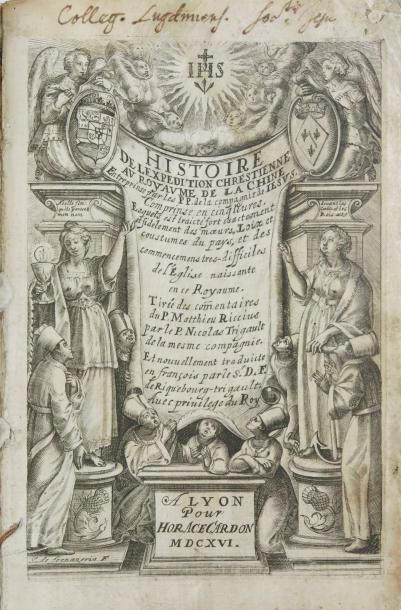 Colleg. Lugdunens. Soc.tis Jesu
IHS
HISTOIRE
DE L'EXPEDITION CHRESTIENNE
AV ROYAVME DE LA CHINE
Entreprinse par les PP. de la compagnie de IESVS.
Comprinse en cinq livres.
Esquels est traicté fort exactement
et fidelement des mœurs, Loix et
coustumes du pays, et des
commencemens tres-difficiles
de l'Eglise naissante
en ce Royaume.
Tirée des cõmentaires
du P. Matthieu Riccius
par le P. Nicolas Trigault
de la mesme compagnie.
Et nouvellement traduicte
en françois par le S. D. F.
de Riquebourg-trigault
Avec privilege du Roy
A LYON
Pour
HORACE CARDON
MDCXVI.
F